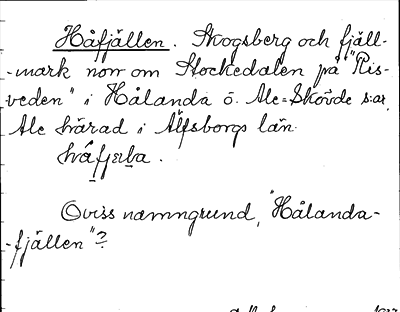 Håfjällen. Skogsberg och fjäll-
-mark norr om Stockedalen på "Ris-
veden" i Hålanda ö. Ale=Skövde s:ar,
Ale härad i Älfsborgs län.
Oviss namngrund, "Hålanda-
-fjällen"?